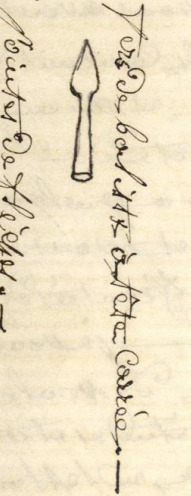 Fers de balistes à tête Carrée. —
Pointes de flèches. —